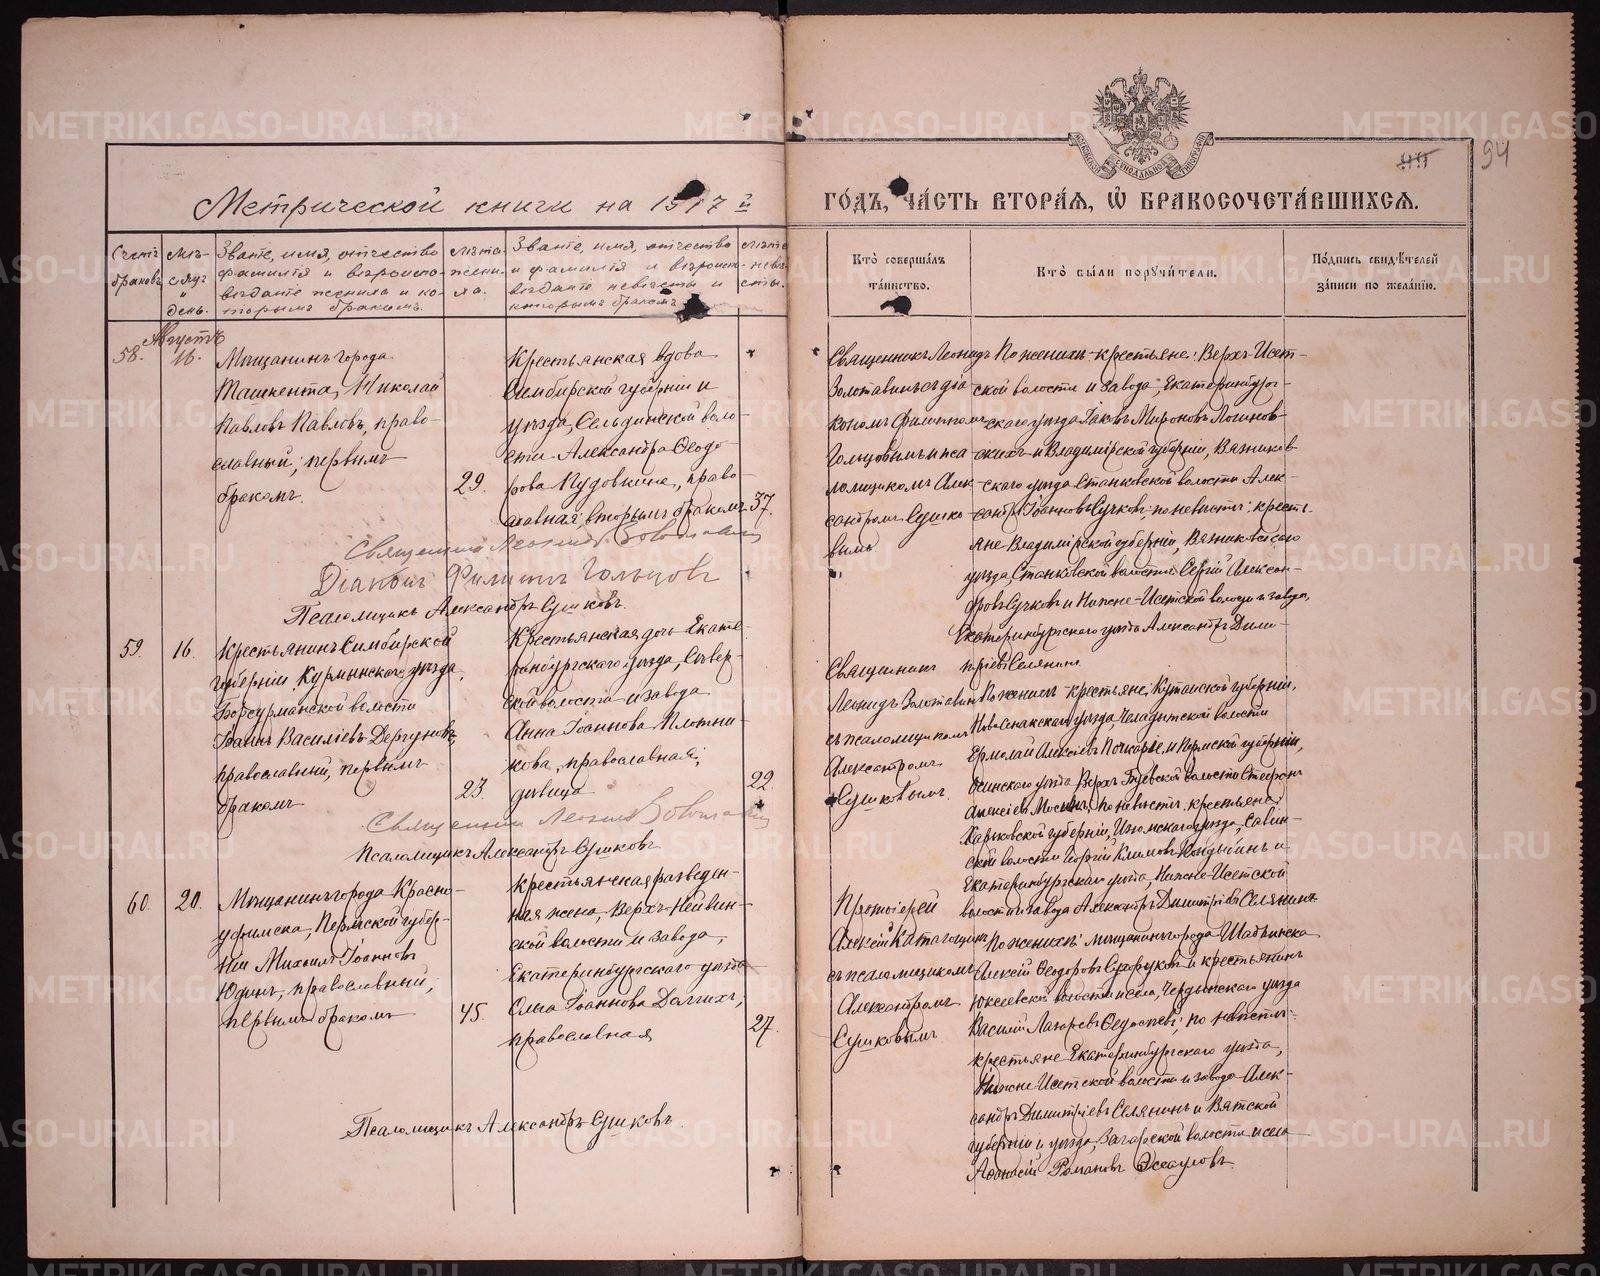 94
Метрической книги на 1917 й
ГОДЪ, ЧАСТЬ ВТОРАЯ, Ѡ БРАКОСОЧЕТАВШИХСЯ.
Счетъ браковъ
Мѣсяцъ и день.
Званіе, имя, отчество
фамилія и вѣроиспо-
вѣданіе жениха и ко-
торымъ бракомъ.
Лѣта
жени-
ха.
Званіе, имя, отчество
и фамилія и вѣроиспо-
вѣданіе невѣсты и
которымъ бракомъ
Лѣта
невѣ-
сты.
Кто совершалъ
таинство.
Кто были поручители.
Подпись свидѣтелей
записи по желанію.
Августъ
58.
16.
Мѣщанинъ города
Ташкента, Николай
Павловъ Павловъ, право-
славный; первымъ
бракомъ.
29.
Крестьянская вдова
Симбирской губерніи и
уѣзда, Сельдинской воло-
сти Александра Ѳеодо-
рова Пудовкина, право-
славная; вторымъ бракомъ
37.
Священникъ Леонидъ
Золотавинъ съ діа-
кономъ Филиппомъ
Гольцовымъ и пса-
ломщикомъ Алек-
сандромъ Сушко-
вымъ.
По женихѣ-крестьяне: Верхъ-Исет-
ской волости и завода, Екатеринбург-
скаго уѣзда Іаковъ Мироновъ Логинов-
скихъ и Владимірской губерніи, Вязников-
скаго уѣзда Станковской волости Алек-
сандръ Іоанновъ Сучковъ; по невѣстѣ: кресть-
яне Владимірской губерніи, Вязниковскаго
уѣзда, Станковской волости Сергій Алексан-
дровъ Сучковъ и Нижне-Исетской волости и завода,
Екатеринбургскаго уѣзда Александръ Дими-
тріевъ Селянинъ
Священникъ Леонидъ Золотавинъ
Діаконъ Филиппъ Гольцовъ
Псаломщикъ Александръ Сушковъ.
59.
16.
Крестьянинъ Симбирской
губерніи, Курмышскаго уѣзда,
Борсурманской волости
Іоаннъ Василіевъ Дергуновъ,
православный, первымъ
бракомъ
23.
Крестьянская дочь Екате-
ринбургскаго уѣзда, Сѣвер-
ской волости и завода
Анна Іоаннова Плотни-
кова, православная;
дѣвица
22.
Священникъ
Леонидъ Золотавинъ
съ псаломщикомъ
Александромъ
Сушковымъ.
По женихѣ-крестьяне; Кутаисской губерніи,
Ново-Сенакскаго уѣзда,
Ермолай Алексіевъ и Пермской губерніи,
Осинскаго уѣзда Верхъ-Буевской волости Стефанъ
Алексіевъ; по невѣстѣ: крестьяне:
Харьковской губерніи, Изюмскаго уѣзда, Савин-
ской волости Георгій Климовъ и
Екатеринбургскаго уѣзда, Нижне-Исетской
волости и завода Александръ Димитріевъ Селянинъ
Священникъ Леонидъ Золотавинъ
Псаломщикъ Александръ Сушковъ
60.
20.
Мѣщанинъ города Красно-
уфимска, Пермской губер-
ніи Михаилъ Іоанновъ
Юдинъ, православный;
первымъ бракомъ
45.
Крестьянская разведен-
ная жена, Верхъ-Нейвин-
ской волости и завода,
Екатеринбургскаго уѣзда
Ольга Іоаннова Долгихъ,
православная
27.
Протоіерей
Алексій Катагощинъ
съ псаломщикомъ
Александромъ
Сушковымъ
По женихѣ: мѣщанинъ города Шадринска
Алексій Ѳеодоровъ Сухоруковъ и крестьянинъ
Юксеевской волости и села, Чердынскаго уѣзда
Василій Лазаревъ Федосѣевъ; по невѣстѣ:-
крестьяне Екатеринбургскаго уѣзда,
Нижне-Исетской волости и завода Алек-
сандръ Димитріевъ Селянинъ и Вятской
губерніи и уѣзда, Загарской волости и села
Аѳанасій Романовъ
Псаломщикъ Александръ Сушковъ.
METRIKI.GASO-URAL.RU